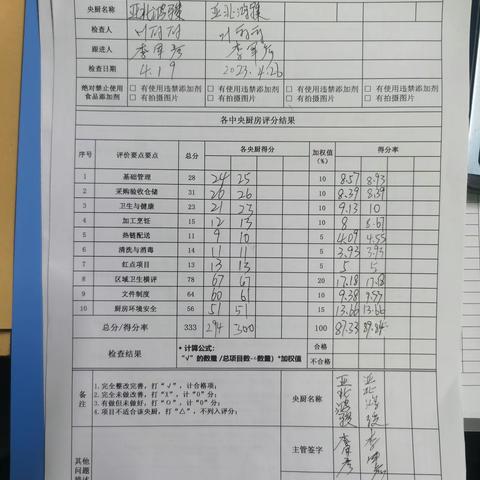 央厨名称 亚北鸿骏 亚北鸿骏
检查人
跟进人 李军芳 李军芳
检查日期 4.19 2023.4.26
绝对禁止使用食品添加剂 □ 有使用违禁添加剂 □ 有使用违禁添加剂 □ 有使用违禁添加剂 □ 有使用违禁添加剂
□ 有拍摄图片 □ 有拍摄图片 □ 有拍摄图片 □ 有拍摄图片
各中央厨房评分结果
序号 评价要点要点 总分 各央厨得分 加权值(%) 得分率
1 基础管理 28 24 25 10 8.57 8.93
2 采购验收仓储 31 26 26 10 8.39 8.39
3 卫生与健康 23 21 23 10 9.13 10
4 加工烹饪 15 12 13 10 8 8.67
5 热链配送 11 9 10 5 4.09 4.55
6 清洗与消毒 14 11 11 5 3.93 3.93
7 红点项目 13 13 13 5 5 5
8 区域卫生横评 78 67 67 20 17.18 17.18
9 文件制度 64 60 61 10 9.38 9.53
10 厨房环境安全 56 51 51 15 13.66 13.66
总分/得分率 333 294 300 100 87.33 89.84
检查结果 * 计算公式: 合格
“√”的数量 /总项目数-△数量）*加权值 不合格
备注 1.完全整改完善，打“√”，计合格项;
2.完全未做改善，打“X”，计“0”分;
3.有做但未做好，打“O”，计“0”分;
4.项目不适合该央厨，打“△”，不列入评分;
央厨名称 亚北鸿骏 亚北鸿骏
主管签字 李军芳 李军芳
其他问题描述